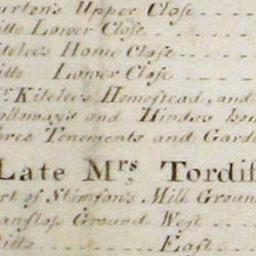 urton's Upper Close
itto Lower Close
itelee's Home Close
itto Lower Close
r. Kitelee's Homestead, and
olloway's and Hindes hou
hree Tenements and Gard
Late Mrs Tordif
art of Stimson's Mill Groun
anslop Ground West
itto East